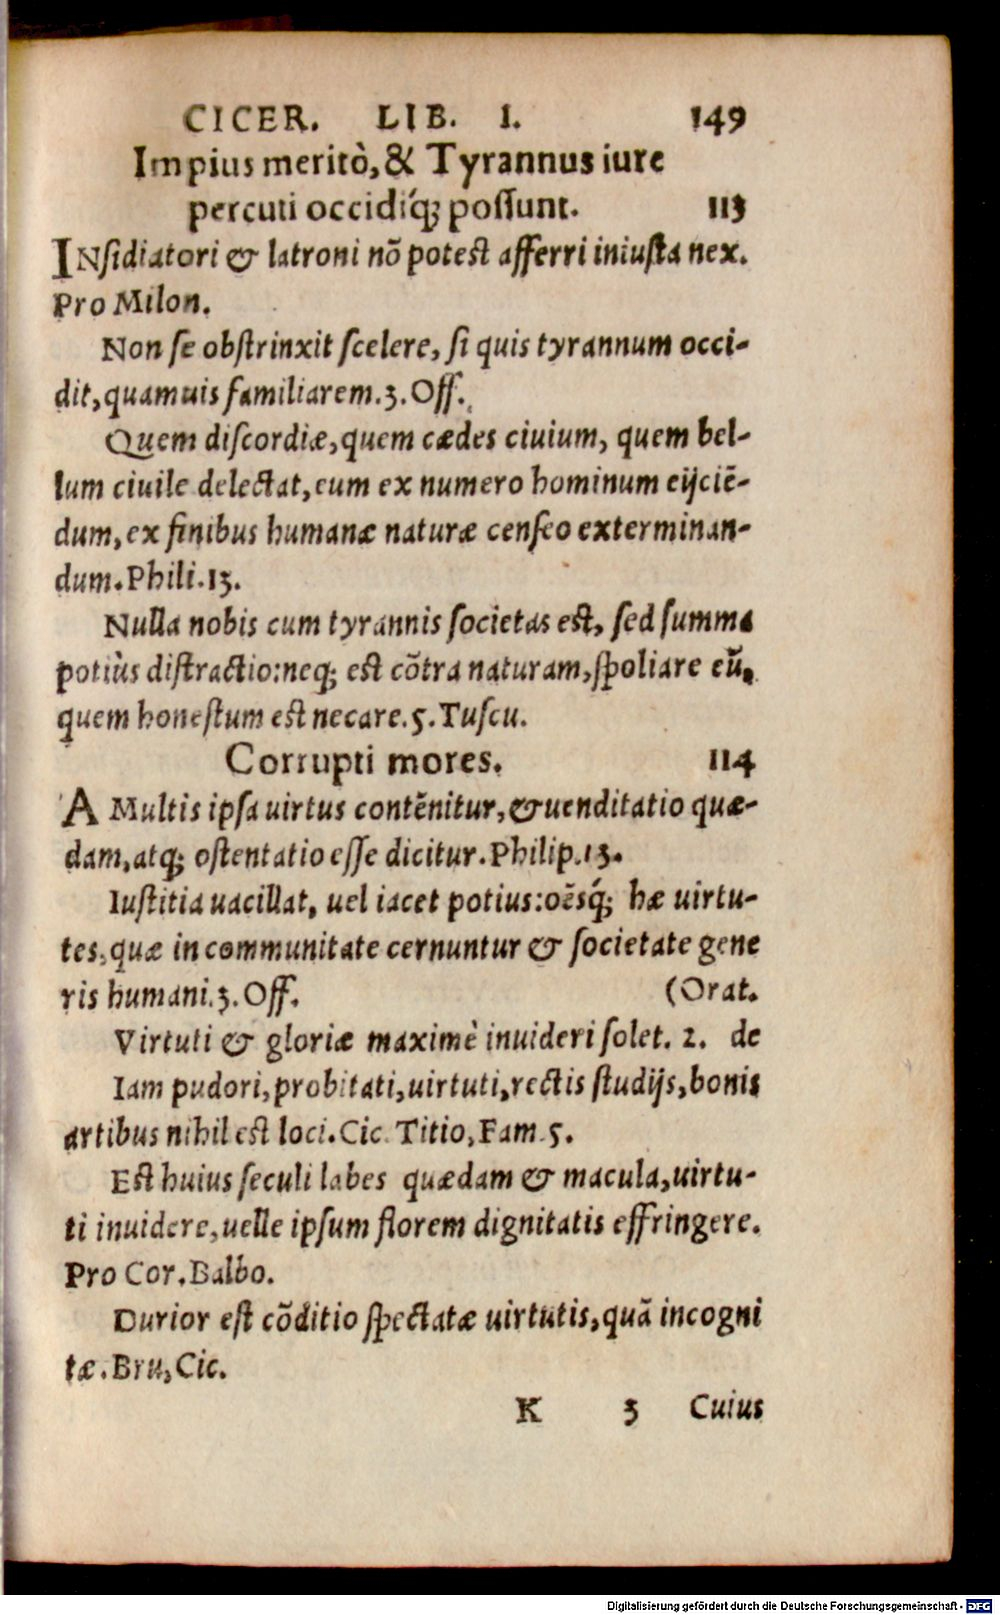 CICER. LIB. I. 149
Impius meritò, & Tyrannus iure
percuti occidíq; possunt. 113
INsidiatori & latroni nõ potest afferri iniusta nex.
Pro Milon.
Non se obstrinxit scelere, si quis tyrannum occi-
dit, quamuis familiarem. 3. Off.
Quem discordiæ, quem cædes ciuium, quem bel-
lum ciuile delectat, eum ex numero hominum eijciẽ-
dum, ex finibus humanæ naturæ censeo exterminan-
dum. Phili. 13.
Nulla nobis cum tyrannis societas est, sed summa
potiùs distractio: neq; est cõtra naturam, spoliare eũ,
quem honestum est necare. 5. Tuscu.
Corrupti mores. 114
A Multis ipsa uirtus contẽnitur, & uenditatio quæ-
dam, atq; ostentatio esse dicitur. Philip. 13.
Iustitia uacillat, uel iacet potius: oẽsq́; hæ uirtu-
tes, quæ in communitate cernuntur & societate gene
ris humani. 3. Off. (Orat.
Virtuti & gloriæ maximè inuideri solet. 2. de
Iam pudori, probitati, uirtuti, rectis studijs, bonis
artibus nihil est loci. Cic. Titio, Fam. 5.
Est huius seculi labes quædam & macula, uirtu-
ti inuidere, uelle ipsum florem dignitatis effringere.
Pro Cor. Balbo.
Durior est cõditio spectatæ uirtutis, quã incogni
tæ. Bru, Cic.
K 3 Cuius
Digitalisierung gefördert durch die Deutsche Forschungsgemeinschaft - DFG